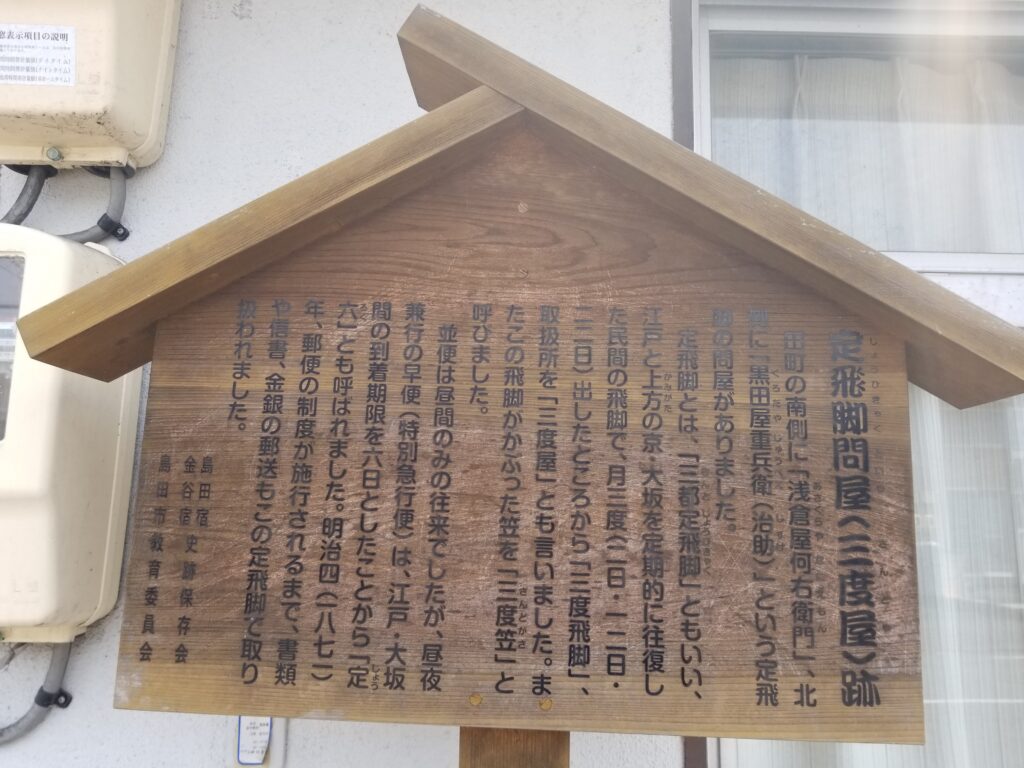 定飛脚問屋(三度屋)跡
田町の南側に「浅倉屋何右衛門」、北
側に「黒田屋重兵衛(治助)」という定飛
脚の問屋がありました。
定飛脚とは、「三都定飛脚」ともいい、
江戸と上方の京・大坂を定期的に往復し
た民間の飛脚で、月三度(二日・一二日・
二二日)出したところから「三度飛脚」、
取扱所を「三度屋」とも言いました。ま
たこの飛脚がかぶった笠を「三度笠」と
呼びました。
並便は昼間のみの往来でしたが、昼夜
兼行の早便(特別急行便)は、江戸・大坂
間の到着期限を六日としたことから「定
六」とも呼ばれました。明治四(一八七一)
年、郵便の制度が施行されるまで、書類
や信書、金銀の郵送もこの定飛脚で取り
扱われました。
島田宿
金谷宿史跡保存会
島田市教育委員会
表示項目の説明